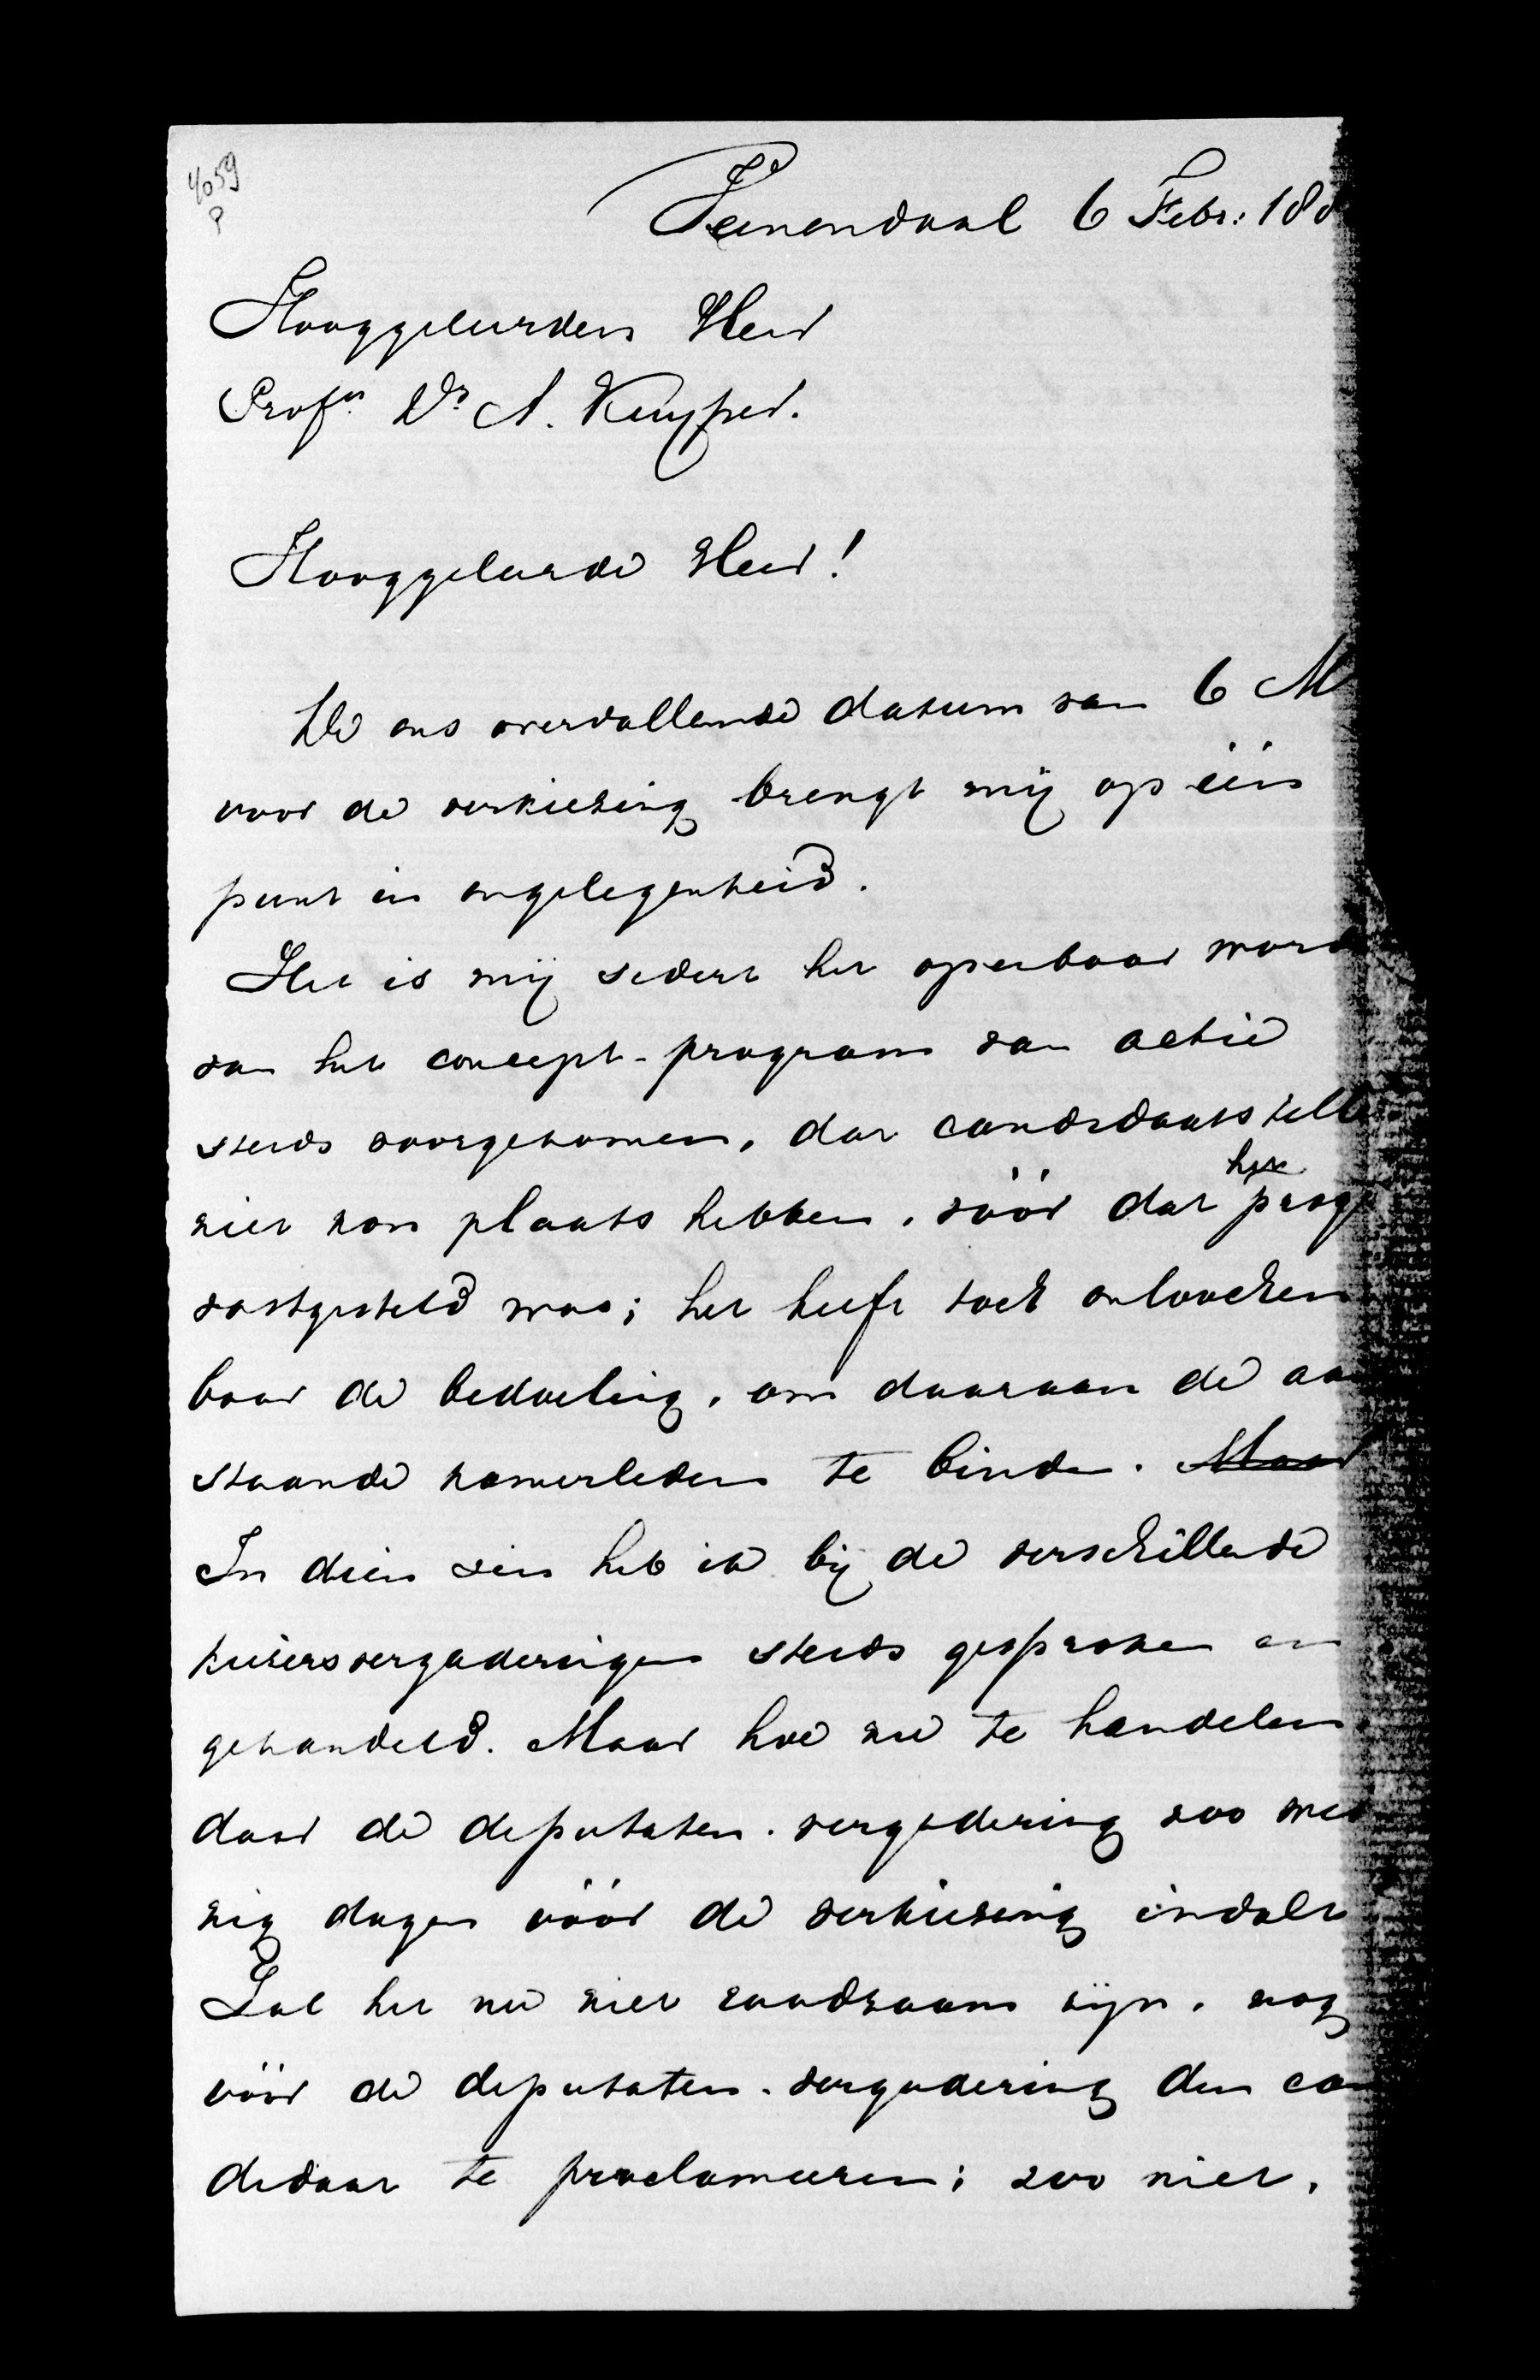 4059
P
Veenendaal 6 Febr: 188
Hooggeleerden Heer
Profr. Dr A. Kuyper.
Hooggeleerde Heer!
De ons overvallende datum van 6 M
voor de verkiezing brengt mij op één
punt in ongelegenheid.
Het is mij sedert het openbaar word
van het concept-program van actie
steeds voorgekomen, dat candidaatstell
niet kon plaats hebben, vóór dat het prog
vastgesteld was; het heeft toch onloochen
baar de bedoeling, om daaraan de aan
staande kamerleden te binden. Maar
In dien zin heb ik bij de verschillende
kiezersvergaderingen steeds gesproken en
gehandeld. Maar hoe nu te handelen
daar de deputaten-vergadering zoo wei
nig dagen vóór de verkiezing invalt
Zal het nu niet raadzaam zijn, nog
vóór de deputaten-vergadering den can
didaat te proclameeren; zoo niet,